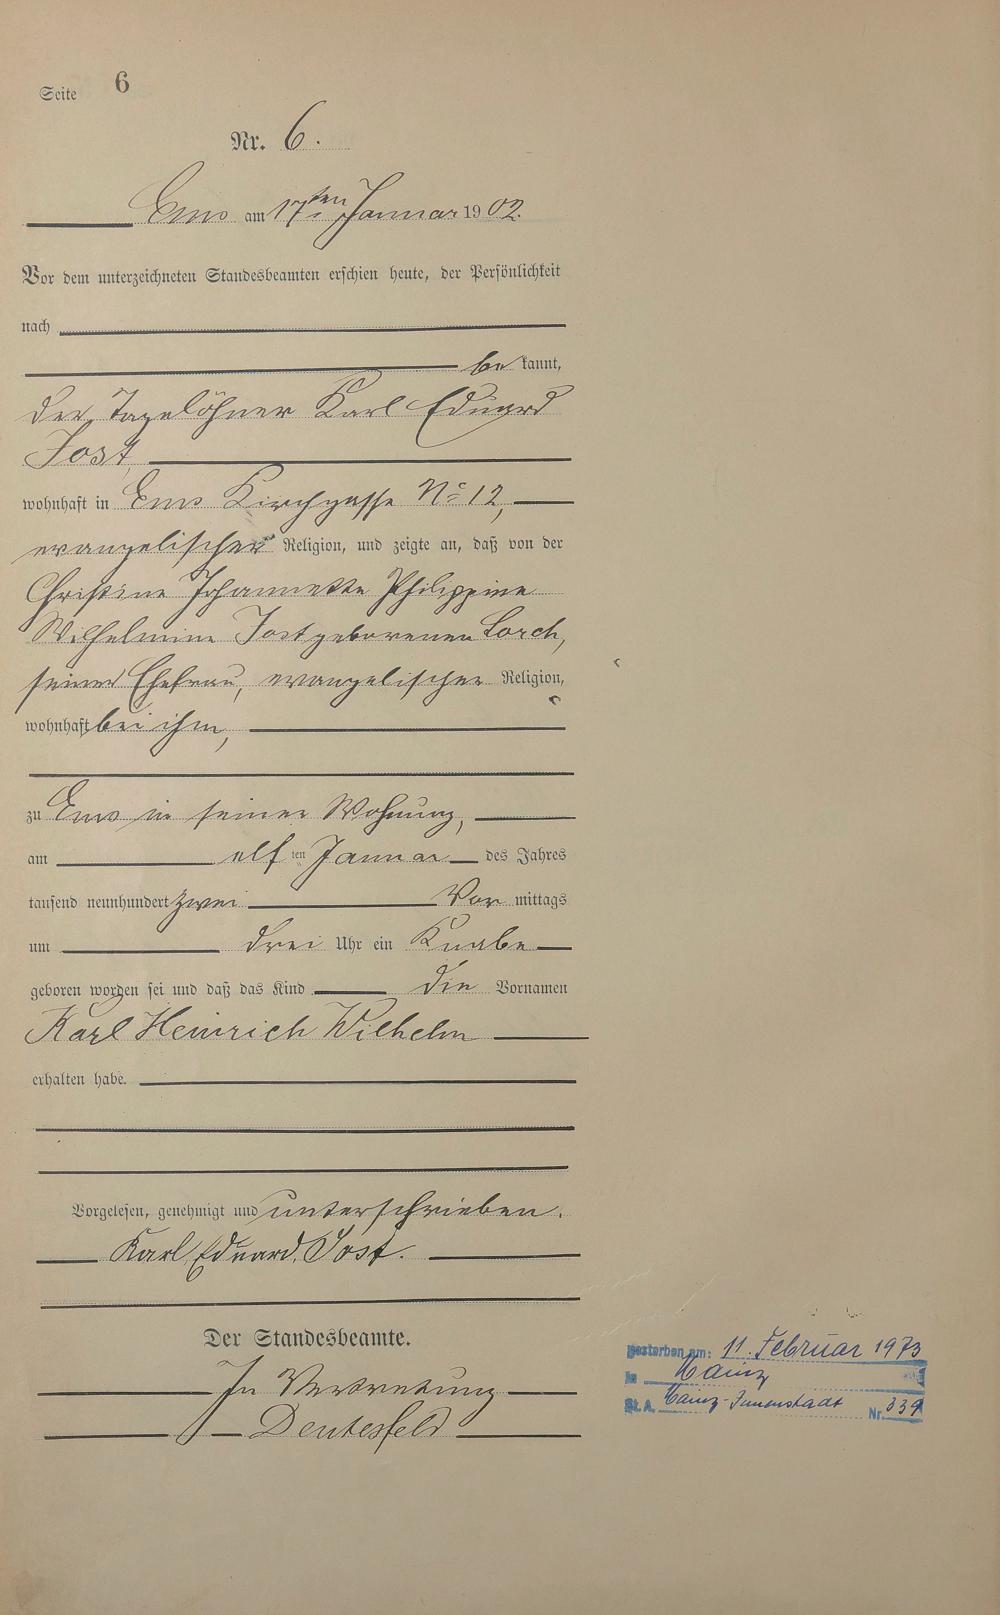 Seite 6
Nr. 6.
Ems am 17ten Januar 1902.
Vor dem unterzeichneten Standesbeamten erschien heute, der Persönlichkeit
nach
be kannt,
der Tagelöhner Karl Eduard
Jost,
wohnhaft in Ems Kirchgasse No 12,
evangelischer Religion, und zeigte an, daß von der
Christine Johannette Philippine
Wilhelmine Jost geborenen Lorch,
seiner Ehefrau, evangelischer Religion,
wohnhaft bei ihm,
zu Ems in seiner Wohnung,
am elf ten Januar des Jahres
tausend neunhundert zwei Vor mittags
um drei Uhr ein Knabe
geboren worden sei und daß das Kind die Vornamen
Karl Heinrich Wilhelm
erhalten habe.
Vorgelesen, genehmigt und unterschrieben.
Karl Eduard Jost.
Der Standesbeamte.
In Vertretung
Deutesfeld
gestorben am: 11. Februar 1973
in Mainz
St. A. Mainz-Innenstadt Nr. 339